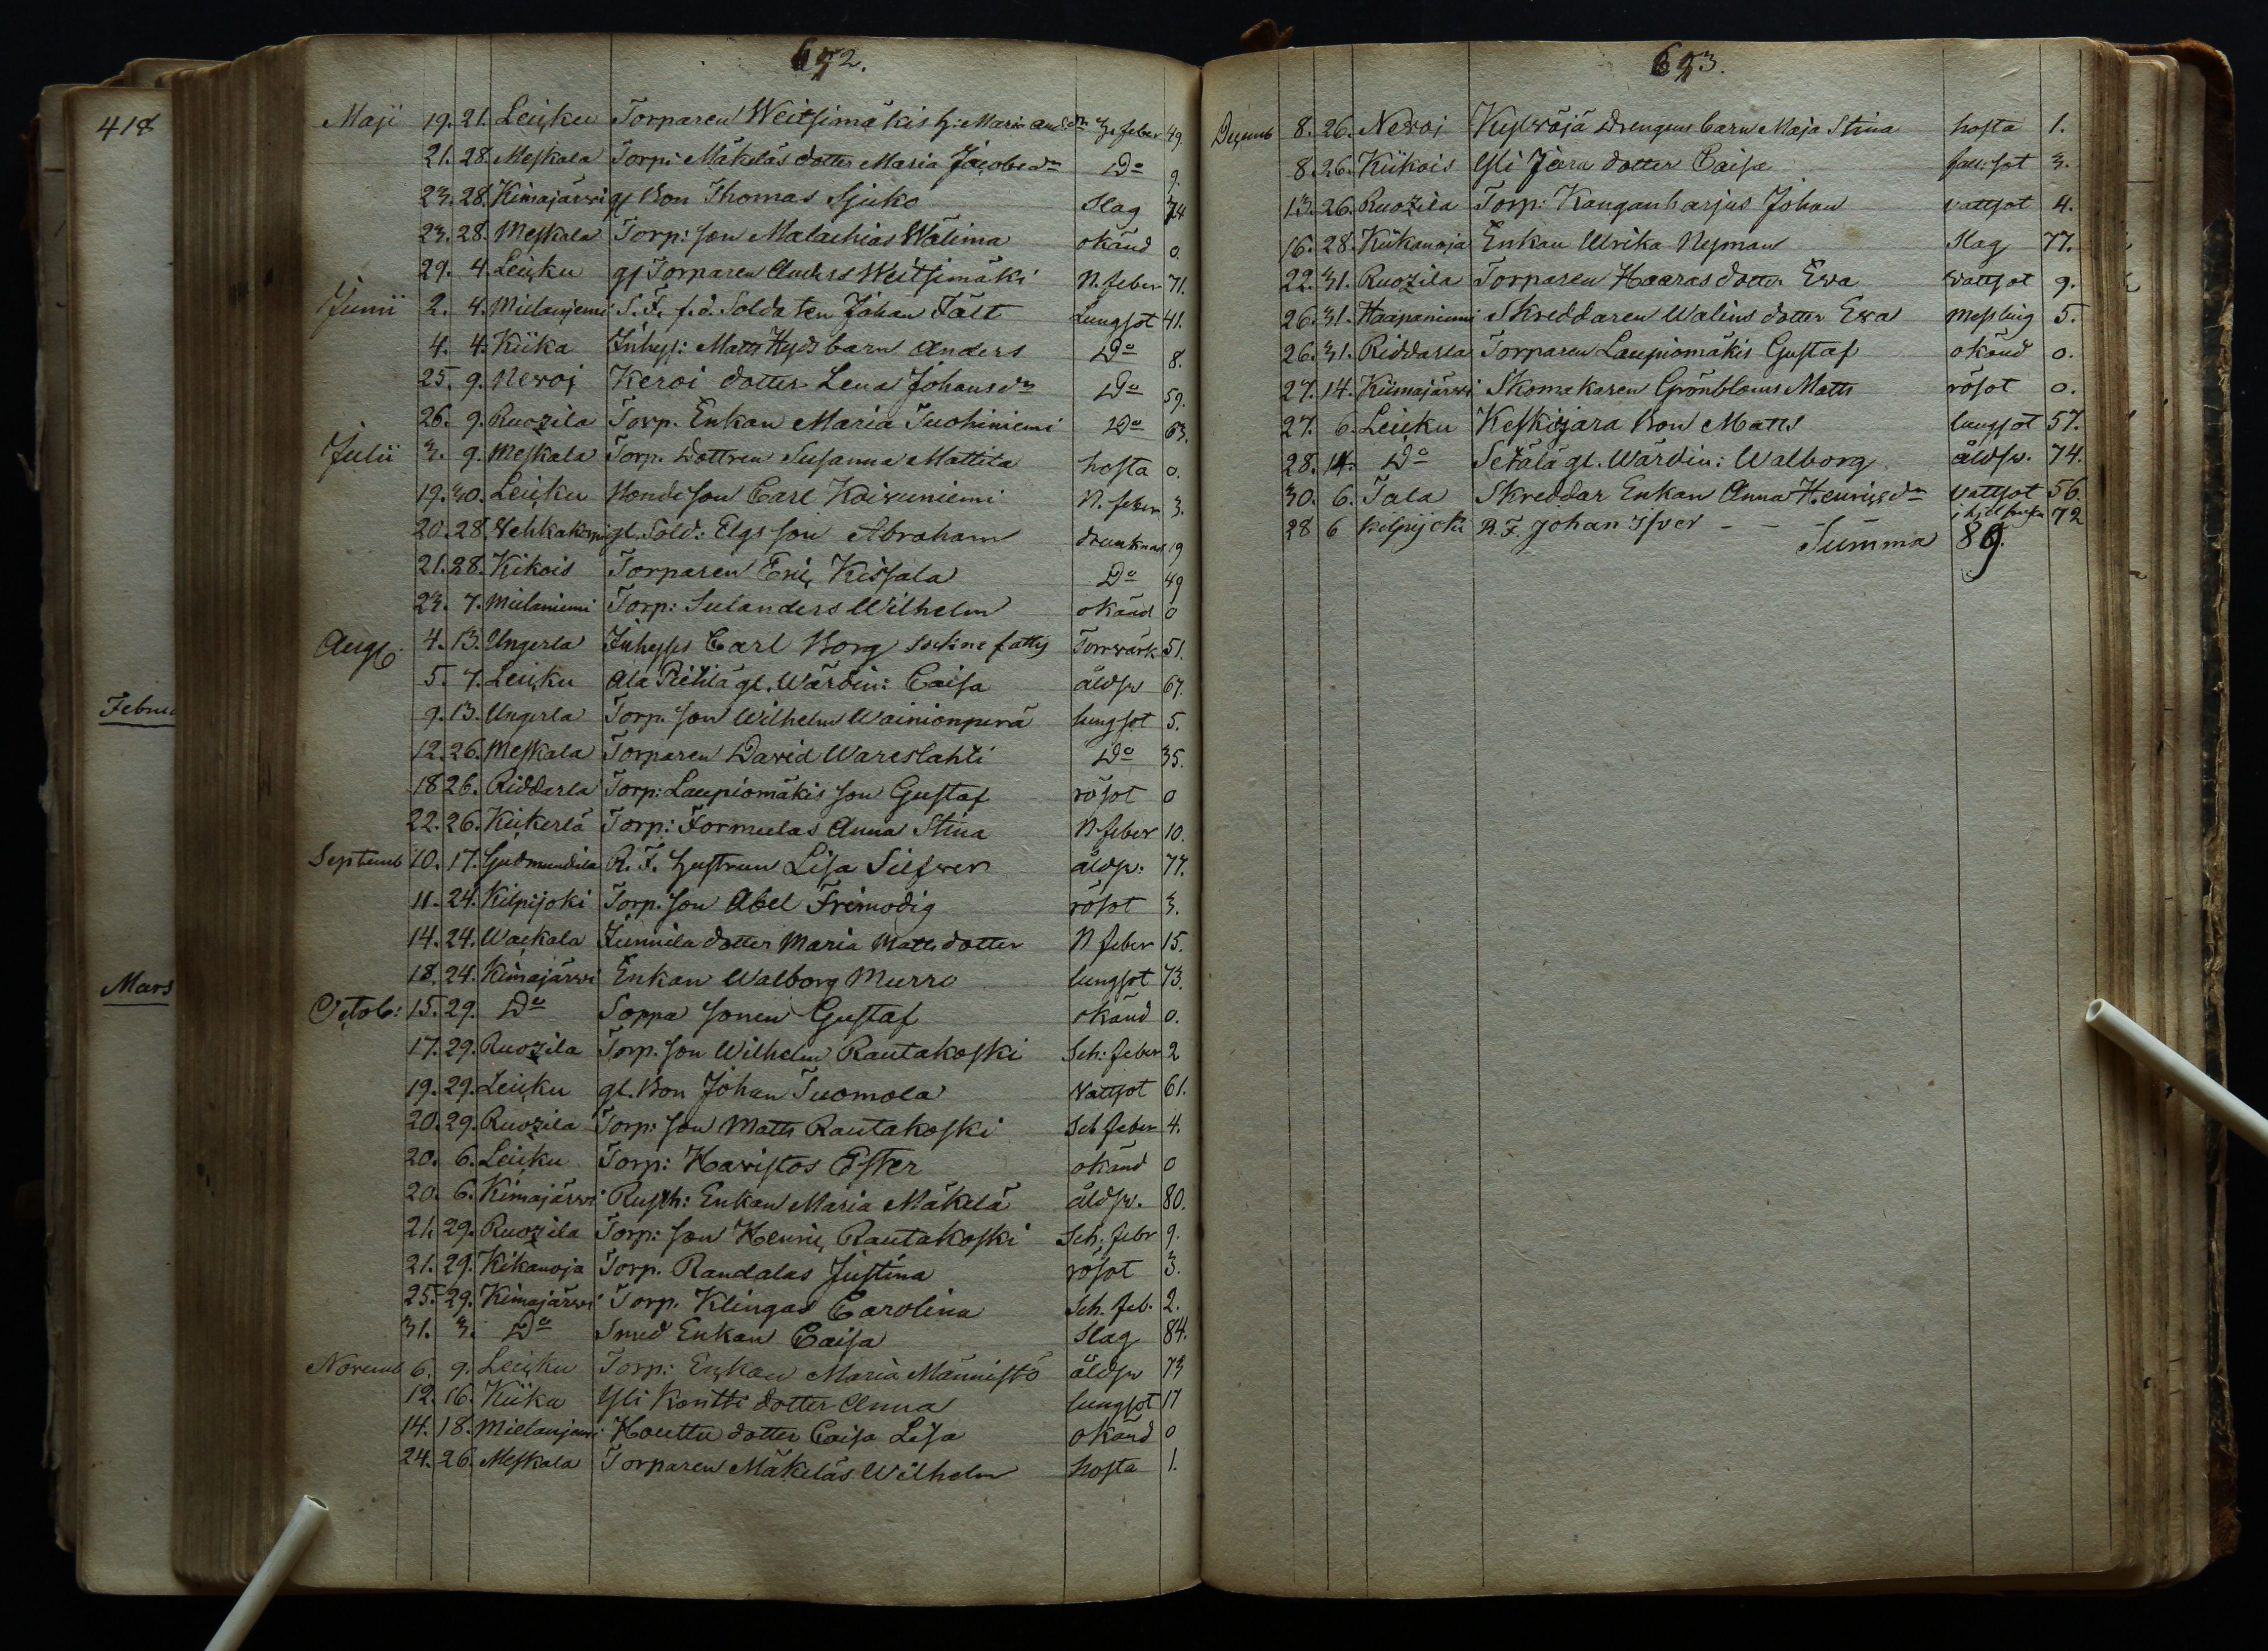 418
Febru
Mars
652.
Maji 19. 21. Leicku Torparen Weitsimäkis h: Maria Andsdr N. feber 49.
21. 28. Meskala Torp: Mäkeläs dotter Maria Jacobsdr Do 9.
23. 28. Kimajärwi gl Bon Thomas Sjuko Slag 74
23. 28. Meskala Torp: son Malachias Wälima okänd 0.
29. 4. Leicku gl Torparen Anders Weitsimäki N. feber 71.
Junii 2. 4. Mielanjemi S. F. f.d. Soldaten Johan Fält Lungsot 41.
4. 4. Kiika Inhys: Matts Hyds barn Anders Do 8.
25. 9. Neroj Keroi dotter Lena Johansdr Do 59.
26. 9. Ruozila Torp. Enkan Maria Tuohiniemi Do 63.
Julii 3. 9. Meskala Torp. Dottren Susanna Mattila hosta 0.
19. 30. Leicku Bonde son Carl Koivuniemi N. feber 3.
20. 28. gl. Sold: Elgs son Abraham drunknad 19
21. 28. Kikois Torparen Eric Kissala Do 49
23. 7. Mielaniemi Torp: Sulanders Wilhelm okänd 0
Aug: 4. 13. Ungerla Inhyses Carl Borg sockne fattig Torrwärk 51.
5. 7. Leicku Ala Pietilä gl. Wärdin: Caisa åldsw 67.
9. 13. Ungerla Torp. son Wilhelm Wainionperä lungsot 5.
12. 26. Meskala Torparen David Wareslahti Do 35.
18 26. Riddarla Torp: Laupiomäkis son Gustaf rösot 0
22. 26. Keikerlä Torp: Formulas Anna Stina N feber 10.
Septemb 10. 17. Gudmundila R. F. hustrun Lisa Silfwer åldsw: 77.
11. 24. Kilpijoki Torp. son Abel Frimodig rösot 3.
14. 24. Wackala Junnila dotter Maria Matts dotter N feber 15.
18. 24. Kimajärwi Enkan Walborg Murro lungsot 73.
Octob: 15. 29. Do Soppa sonen Gustaf okänd 0.
17. 29. Ruozila Torp. son Wilhelm Rautakoski Sch: feber 2
19. 29. Leicku gl. Bon Johan Tuomola Vattsot 61.
20. 29. Ruozila Torp: son Matts Rautakoski Sch feber 4.
20. 6. Leicku Torp: Havistos Ester okänd 0
20. 6. Kimajärwi Rusth: Enkan Maria Mäkelä åldsw. 80.
21. 29. Ruozila Torp: son Henric Rautakoski Sch: febr 9.
21. 29. Kikanoja Torp. Randalas Justina rösot 3.
25. 29. Kimajärwi Torp. Klingas Carolina Sch. feb. 2.
31. 3. Do Smed Enkan Caisa Slag 84.
Novemb 6. 9. Leicku Torp: Enkan Maria Männistö åldsw 73
12. 16. Kiika Yli Kontti dotter Anna lungsot 17
14. 18. Mielanjemi Houttu dotter Caisa Lisa okänd 0
24. 26. Meskala Torparen Mäkeläs Wilhelm hosta 1.
653.
Decemb 8. 26. Neroj Kylwöjä Drengens barn Maja Stina hosta 1.
8. 26. Kiikois Yli Jaara dotter Caisa fall: sot 3.
13. 26. Ruozila Torp: Kanganharjus Johan vattsot 4.
16. 28. Kiikanoja Enkan Ulrika Nyman Slag 77.
22. 31. Ruozila Torparen Haaras dotter Ewa vattsot 9.
26. 31. Haapaniemi Skreddaren Walins dotter Ewa messling 5.
26. 31. Riddarla Torparen Laupiomäkis Gustaf okänd 0.
27. 14. Kiimajärwi Skomakaren Grönbloms Matts rösot 0.
27. 6. Leicku Keskijara Bon Matts lungsot 57.
28. 14. Do Setälä gl. Wärdin: Walborg åldsw. 74.
30. 6. Tala Skreddar Enkan Anna Henricsdr Vattsot 56.
28 6 Kilpijoki R. F. Johan Ifver - - 72
Summa 89.